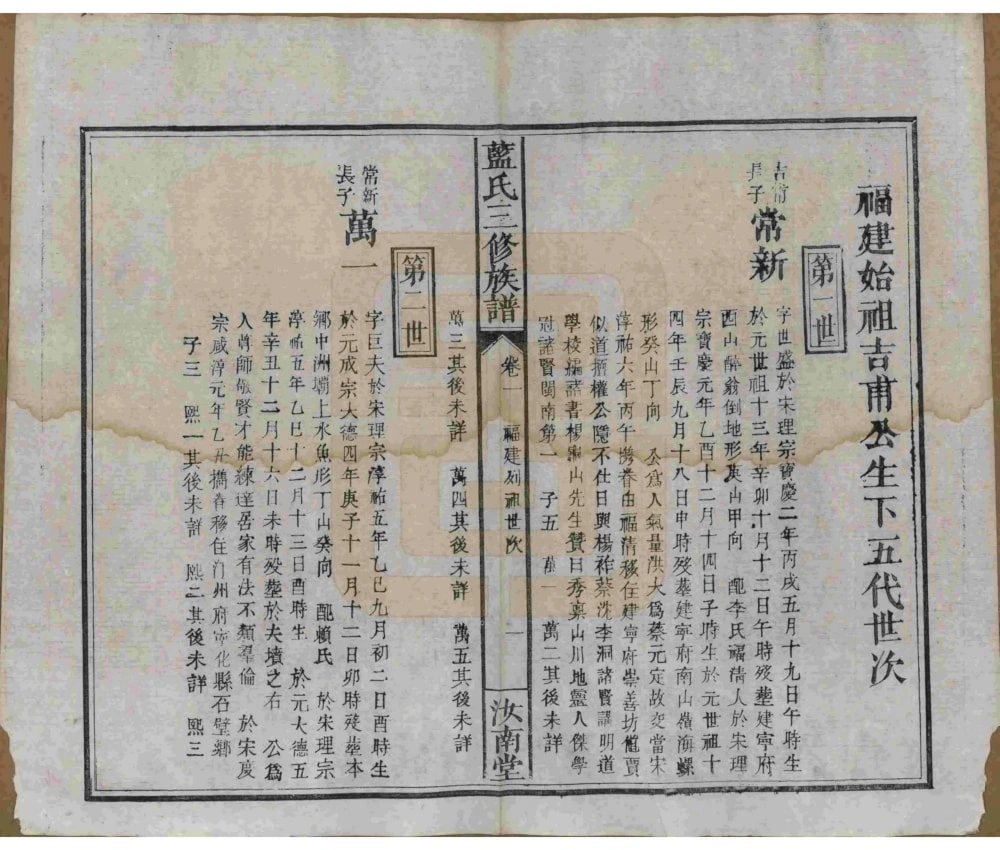 福建始祖吉甫公生下五代世次
第一世
吉甫長子
常新
字世盛於宋理宗寶慶二年丙戌五月十九日午時生
於元世祖十三年辛卯十月十二日午時歿塟建寧府
西山醉翁倒地形庚山甲向 配李氏福清人於宋理
宗寶慶元年乙酉十二月十四日子時生於元世祖十
四年壬辰九月十八日申時歿塟建寧府南山嶺海螺
形癸山丁向 公爲人氣量洪大爲蔡元定故交當宋
淳祐六年丙午携眷由福清移住建寧府崇善坊惟賈
似道擅權公隱不仕日與楊祚蔡沈李洞諸賢講明道
學校編諸書楊龜山先生贊曰秀禀山川地靈人傑學
冠諸賢閩南第一 子五 萬一 萬二其後未詳
藍氏三修族譜
卷一 福建列祖世次
一
汝南堂
萬三其後未詳 萬四其後未詳 萬五其後未詳
第二世
常新長子
萬一
字巨夫於宋理宗淳祐五年乙巳九月初二日酉時生
於元成宗大德四年庚子十一月十二日卯時歿塟本
鄉中洲壩上水魚形丁山癸向 配賴氏 於宋理宗
淳祐五年乙巳十二月十三日酉時生 於元大德五
年辛丑十二月十六日未時歿塟於夫墳之右 公爲
人尊師敬賢才能練達居家有法不類羣倫 於宋度
宗咸淳元年乙丑攜眷移住汀州府寧化縣石壁鄉
子三 熙一其後未詳 熙二其後未詳 熙三